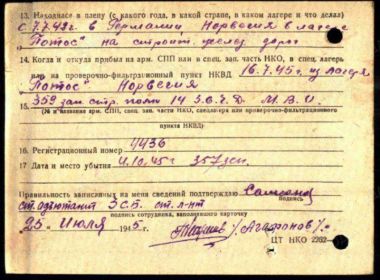 13. Находился в плену (с какого года, в какой стране, в каком лагере и что делал)
с 7.7.42г в Германии Норвегия в лагере
"Потос" на строит. желез дорог
14. Когда и откуда прибыл на арм. СПП или в спец. зап. часть НКО, в спец. лагерь
или на проверочно-фильтрационный пункт НКВД 16.7.45г из лагеря
"Потос" Норвегия
15. 359 зап. стр. полк 14 З.С.Д. М.В.О.
(№ и название арм. СПП, спец. зап. части НКО, спецлагеря или проверочно-фильтрационного
пункта НКВД)
16. Регистрационный номер 4436
17 Дата и место убытия 4.10.45г 357
Правильность записанных на меня сведений подтверждаю
подпись
ст. адъютант 3СБ ст. л-нт
подпись сотрудника, заполнявшего карточку
25 Июля 1945 г. /Агафонов/
ЦТ НКО 2262